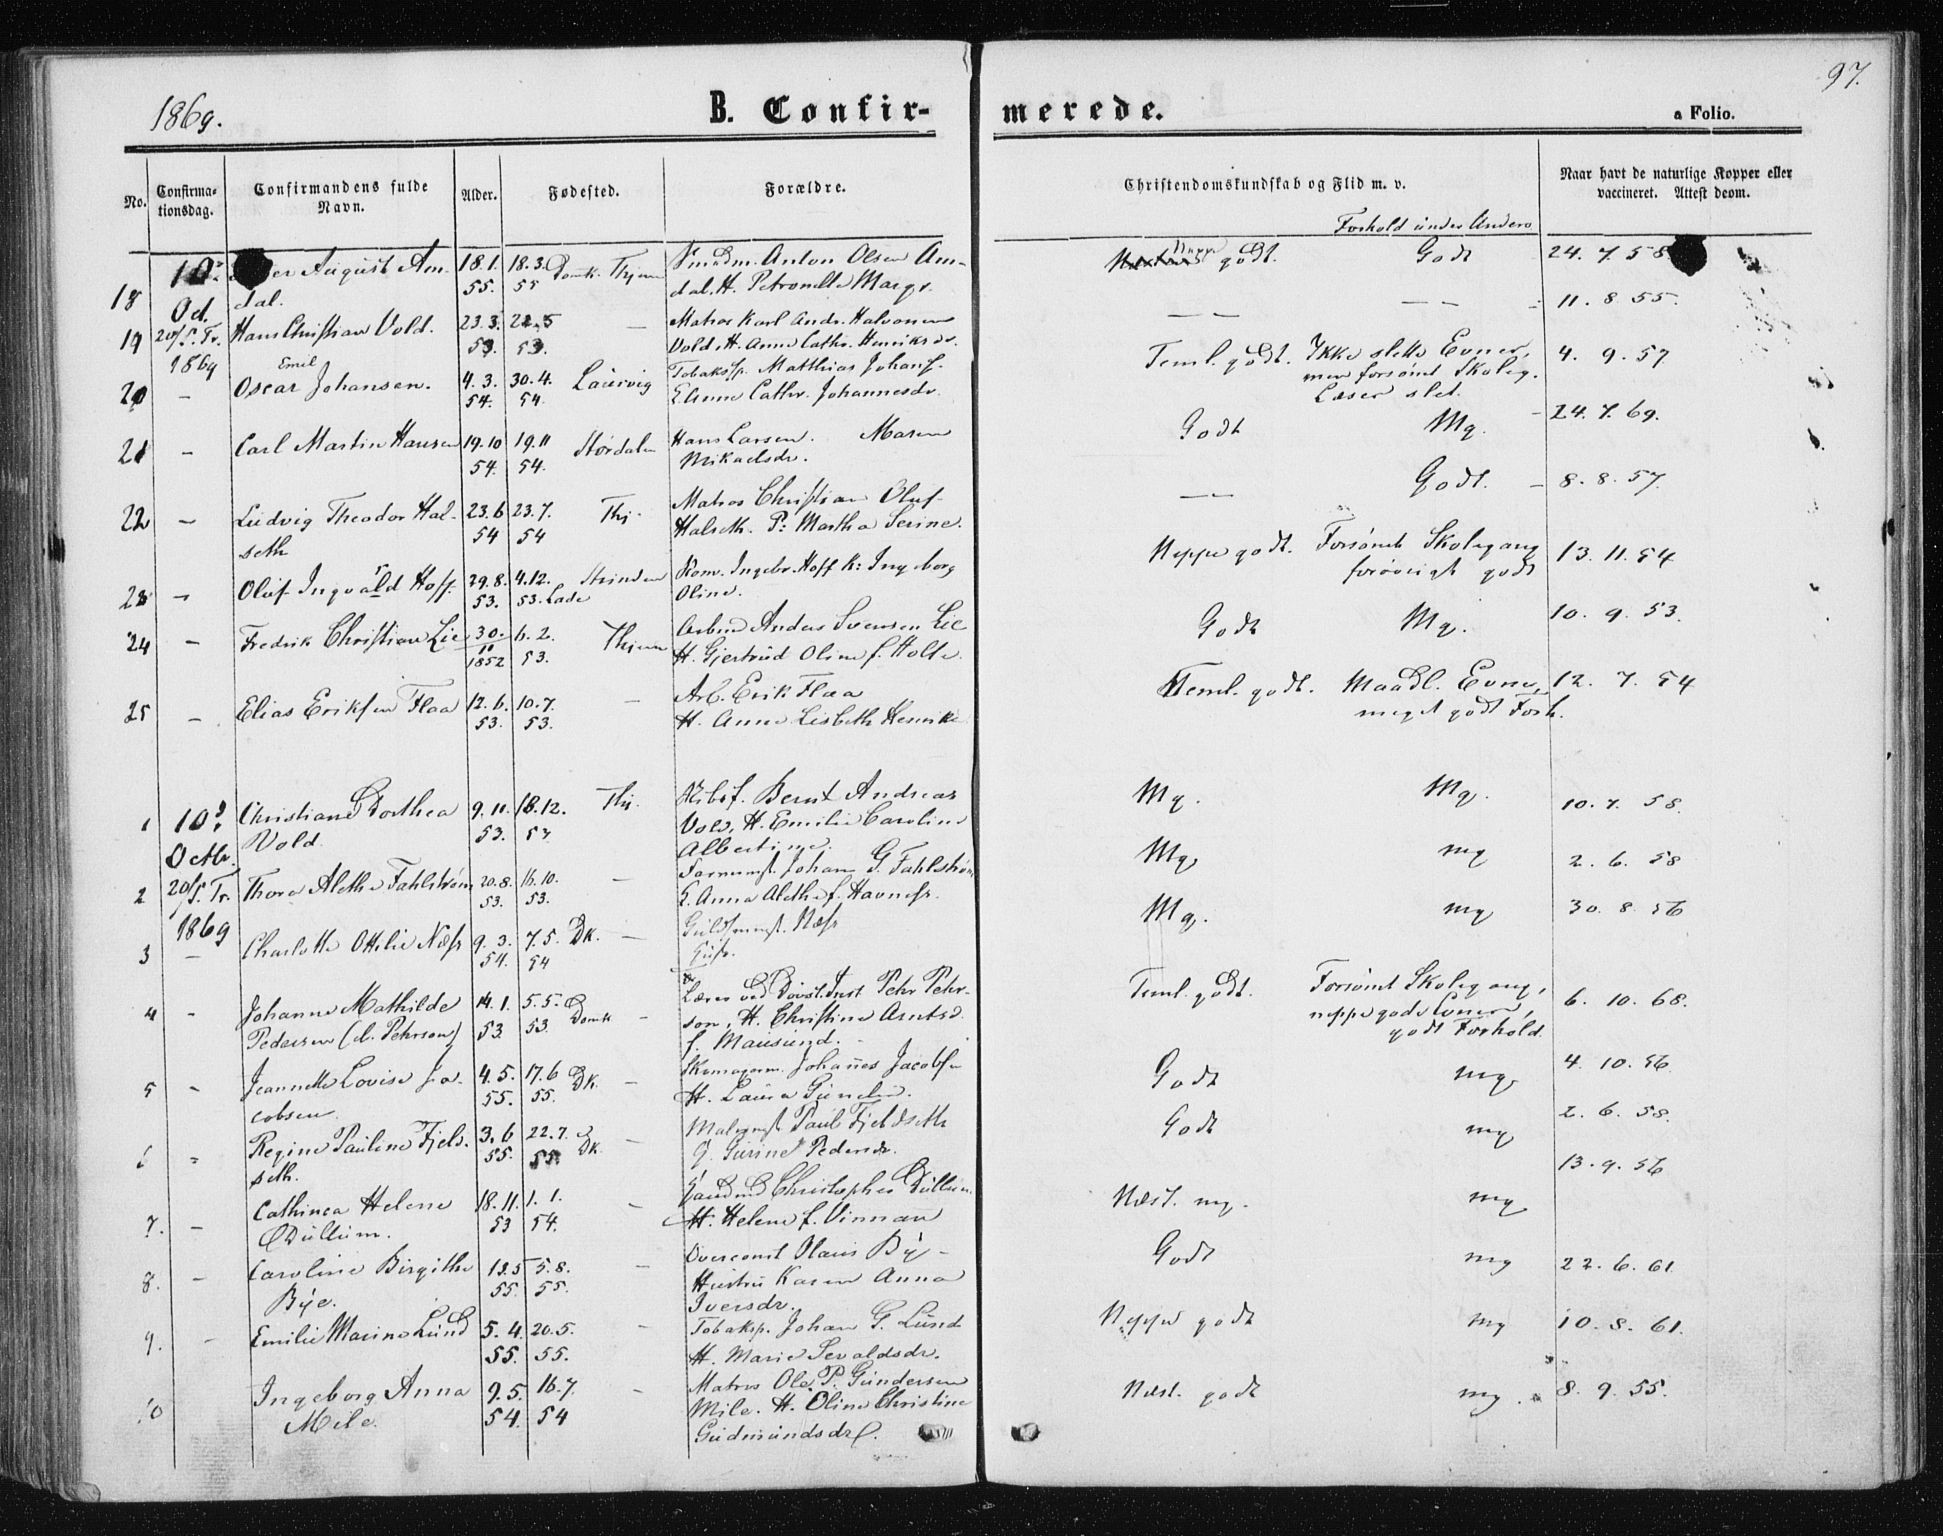 1869.
B. Confir-
merede.
97.
a Folio.
No.
Confirma-
tionsdag.
Confirmandens fulde
Navn.
Alder.
Fødested.
Forældre.
Christendomskundskab og Flid m. v.
Forhold under Anderv
Naar havt de naturlige Kopper eller
vaccineret. Attest deom.
18 10. August Am- 18.1. 18.3. Domk. Thjem Anton Olsen Am- Neppe godt. Godt 24. 7. 58
Oct. dal. 55. 55 dal, H. Petronelle Margr.
— — — — - 11. 8. 55.
19 20/S. Tr. Hans Christian Vold. 23.3. 22.5 — Matros Karl Andr. Halvorsen
1869 53. 53. Vold, H. Anne Cathr. Henriksdr.
Teml. godt. Ikke slette Evner, 4. 9. 57
men forsømt Skoleg.
Læser slet.
20 — Oscar Emil Johansen. 4.3. 30.4. Laurvig Tobakssp. Matthias Johans.
54. 54. E Anne Cathr. Johannesdr.
Godt Mg. - 24. 7. 69.
21 — Carl Martin Hansen 19.10 19.11 Størdalen Hans Larsen. Maren
54. 54. Mikaelsdr.
— — Godt. - 8. 8. 57.
22 — Ludvig Theodor Hal- 23.6 23.7. Thj. Matros Christian Oluf
seth 54 54 Halseth. P: Martha Serine.
Neppe godt. Forsømt Skolegang 13. 11. 54
forøvrigt godt
23 — Oluf Ingvald Hoff. 29.8. 4.12. Strinden Kom. Ingebr. Hoff K: Ingeborg
53. 53. Lade Oline.
Godt Mg. 10. 9. 53.
24 — Fredrik Christian Lie 30. 6.2. Thjem Arbmd Anders Svensen Lie
11 1852 53. H. Gjertrud Oline f. Holte.
Teml. godt. Maadl. Evner, 12. 7. 54
meget godt Forh.
25 — Elias Eriksen Flaa 12.6. 10.7. — Arb. Erik Flaa
53. 53. H. Anne Lisbeth Henrike
1 10. Christiane Dorthea 9.11. 18.12. Thj. Bernt Andreas Mg. Mg. 10. 7. 58
Octbr. Vold. 53. 53 Vold, H. Emilie Caroline
Albertine.
2 20/S. Tr. Thora Alethe Fahlstrøm 20.8. 16.10. — Johan G. Fahlstrøm Mg. mg 2. 6. 58
1869 53. 53. E. Anna Alethe f. Havness.
3 — Charlotte Ottilie Næss 9.3. 7.5. DK. — Guldsmmst. Næss Mg. mg 30. 8. 56
54. 54
4 - Johanne Mathilde 14.1. 5.5. Domk — Lærer ved Døvst. Inst Pehr Pehr- Teml. godt. Forsømt Skolegang, 6. 10. 68.
Pedersen (d. Pehrson) 53. 53. son, H. Christine Arntsd. neppe gode Evner,
f. Mausund. godt Forhold.
5 - Jeannette Lovise Ja- 4.5. 17.6 DK. — Skomagerm. Johannes Jacobsen Godt mg. 4. 10. 56.
cobsen 55. 55. H. Laura
6 - Regine Pauline Fjeld- 3.6 22.7. DK. — Malermst Paul Fjeldseth Godt mg 2. 6. 58.
seth. 55. 55. Gurine Pedersdr.
7. — Cathinca Helene 18.11. 1.1. — Christopher Dullum Næst. mg. mg 13. 9. 56
Dullum. 53 54. H. Helene f. Vinnan
8. — Caroline Birgithe 13.5 5.8. — Overconst Olaus Bÿe - Godt mg 22. 6. 61.
Bÿe. 55. 55. Hustru Karen Anna
Iversdr.
9. - Emilie Marine Lund 5.4. 20.5. — Tobaksp. Johan G. Lund Neppe godt mg 10. 8. 61.
55. 55. H. Marie Sevaldsdr.
10 Ingeborg Anna 9.5. 16.7. — Matros Ole P. Gundersen Næst. godt mg. 8. 9. 55.
Mile. 54. 54 Mile. H. Oline Christine
Gudmundsdr.